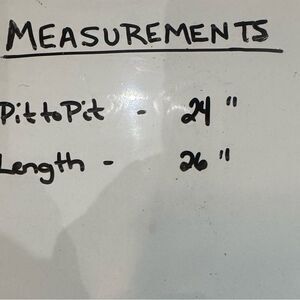 MEASUREMENTS
Pit to Pit - 24 "
Length - 26 "